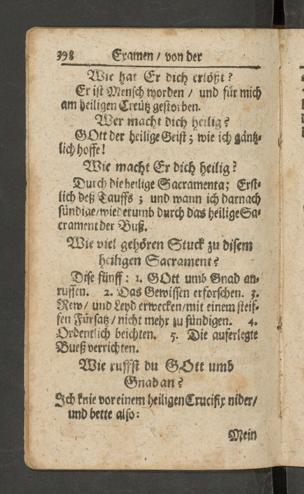 398 Examen / von der
Wie hat Er dich erlößt?
Er ist Mensch worden / und für mich
am heiligen Creütz gestorben.
Wer macht dich heilig?
GOtt der heilige Geist; wie ich gäntz-
lich hoffe!
Wie macht Er dich heilig?
Durch die heilige Sacramenta; Erst-
lich deß Tauffs; und wann ich darnach
sündige/wiederumb durch das heilige Sa-
crament der Buß.
Wie viel gehören Stuck zu disem
heiligen Sacrament?
Dise fünff: 1. GOtt umb Gnad an-
ruffen. 2. Das Gewissen erforschen. 3.
Rew/ und Leyd erwecken/mit einem steif-
fen Fürsatz/nicht mehr zu sündigen. 4.
Ordentlich beichten. 5. Die aufferlegte
Bueß verrichten.
Wie ruffst du GOtt umb
Gnad an?
Ich knie vor einem heiligen Crucifix nider/
und bette also:
Mein